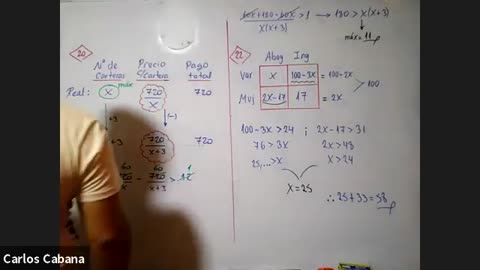 60x+180-60x/x(x+3) > 1 → 180 > x(x+3)
máx = 11
20
Nº de Carteras
Precio c/Cartera
Pago total
Real: x máx 720/x 720
+3 (-)
+3 720/x+3 720
720/x+3 > 12
22
Abog Ing
Var x 100-3x = 100-2x
> 100
Muj 2x-17 17 = 2x
100-3x > 24 ; 2x-17 > 31
76 > 3x 2x > 48
25,... > x x > 24
x = 25
∴ 25+33 = 58
Carlos Cabana